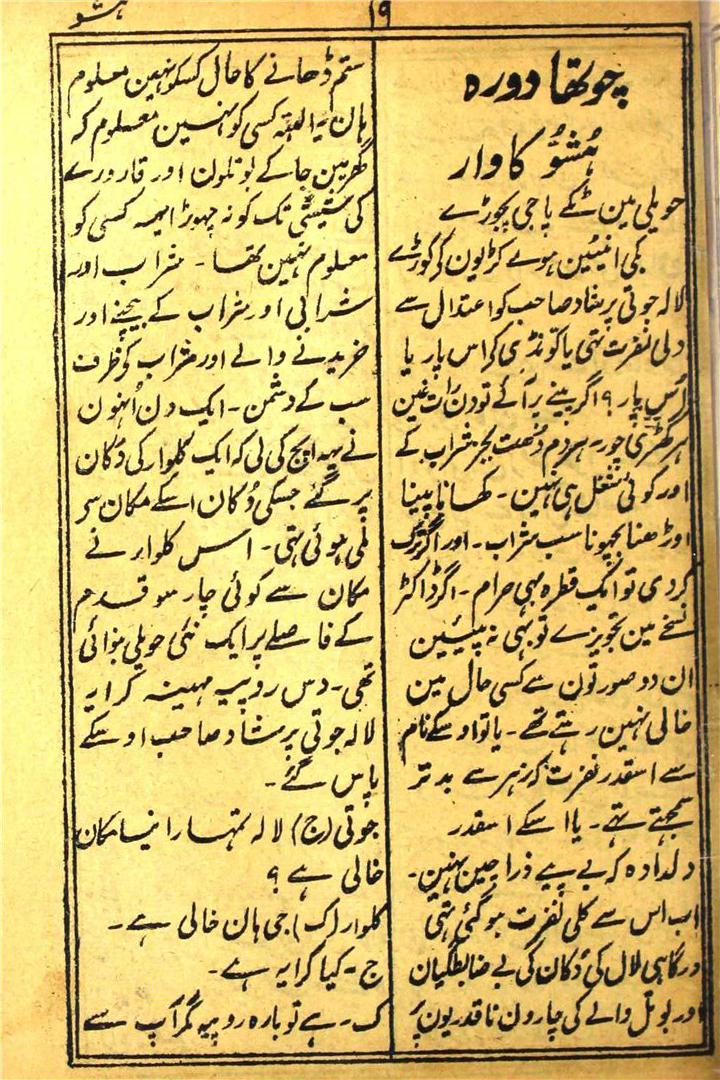 ہشو
۱۹
چوتھا دورہ
ہُشّو کا وار
حویلی مین ٹکے پاجی پچوڑے
بکی انیٹین ہوے کڑیون کے کوڑے
لالہ جوتی پرشاد صاحب کو اعتدال سے
دلی نفرت تہی یا کونڈی کے اس پار یا
اُس پار؟ اگر پینے پر آئے تو دن رات نمین
ہر گھڑی چور۔ ہر دم دُھت بجز شراب کے
اور کوئی شغل ہی نہین۔ کھانا پینا
اوڑھنا بچھونا سب شراب۔ اور اگر ترک
کر دی تو ایک قطرہ بہی حرام۔ اگر ڈاکٹر
نسخے مین تجویز ے تو بہی نہ پیئین
ان دو صورتون سے کسی حال مین
خالی نہین رہتے تھے۔ یا تو اوسکے نام
سے اسقدر نفرت کہ زہر سے بدتر
سمجہتے تہے۔ یا اسکے اسقدر
دلدادہ کہ بے پیے ذرا چین نہین۔
اب اس سے کلی نفرت ہو گئی تہی
درگاہی لال کی دُکان کی بے ضابطگیان
اور بوتل والے کی چارون ناقدریون پر
ستم ڈھانے کا حال کسکو نہین معلوم
ہان یہ البتہ کسی کو نہین معلوم کہ
گھر مین جا کے بوتلون اور قارورے
کی شیشی تک کو نہ چھوڑا ایہہ کسی کو
معلوم نہین تھا۔ شراب اور
شرابی اور شراب کے بیچنے اور
خریدنے والے اور شراب کے ظرف
سب کے دشمن۔ ایک دن اُنہون
نے یہہ اوپج کی لی کہ ایک کلوار کی دُکان
پر گئے جسکی دُکان اسکے مکان سے
ملی ہوئی تہی۔ اس کلوار نے
مکان سے کوئی چار سو قدم
کے فاصلے پر ایک نئی حویلی بنوائی
تھی۔ دس روپیہ مہینہ کرایہ
لالہ جوتی پرشاد صاحب اوسکے
پاس گئے۔
جوتی (ج) لالہ تمہارا نیا مکان
خالی ہے؟
کلوار (ک) جی ہان خالی ہے۔
ج۔ کیا کرایہ ہے۔
ک۔ ہے تو بارہ روپیہ مگر آپ سے